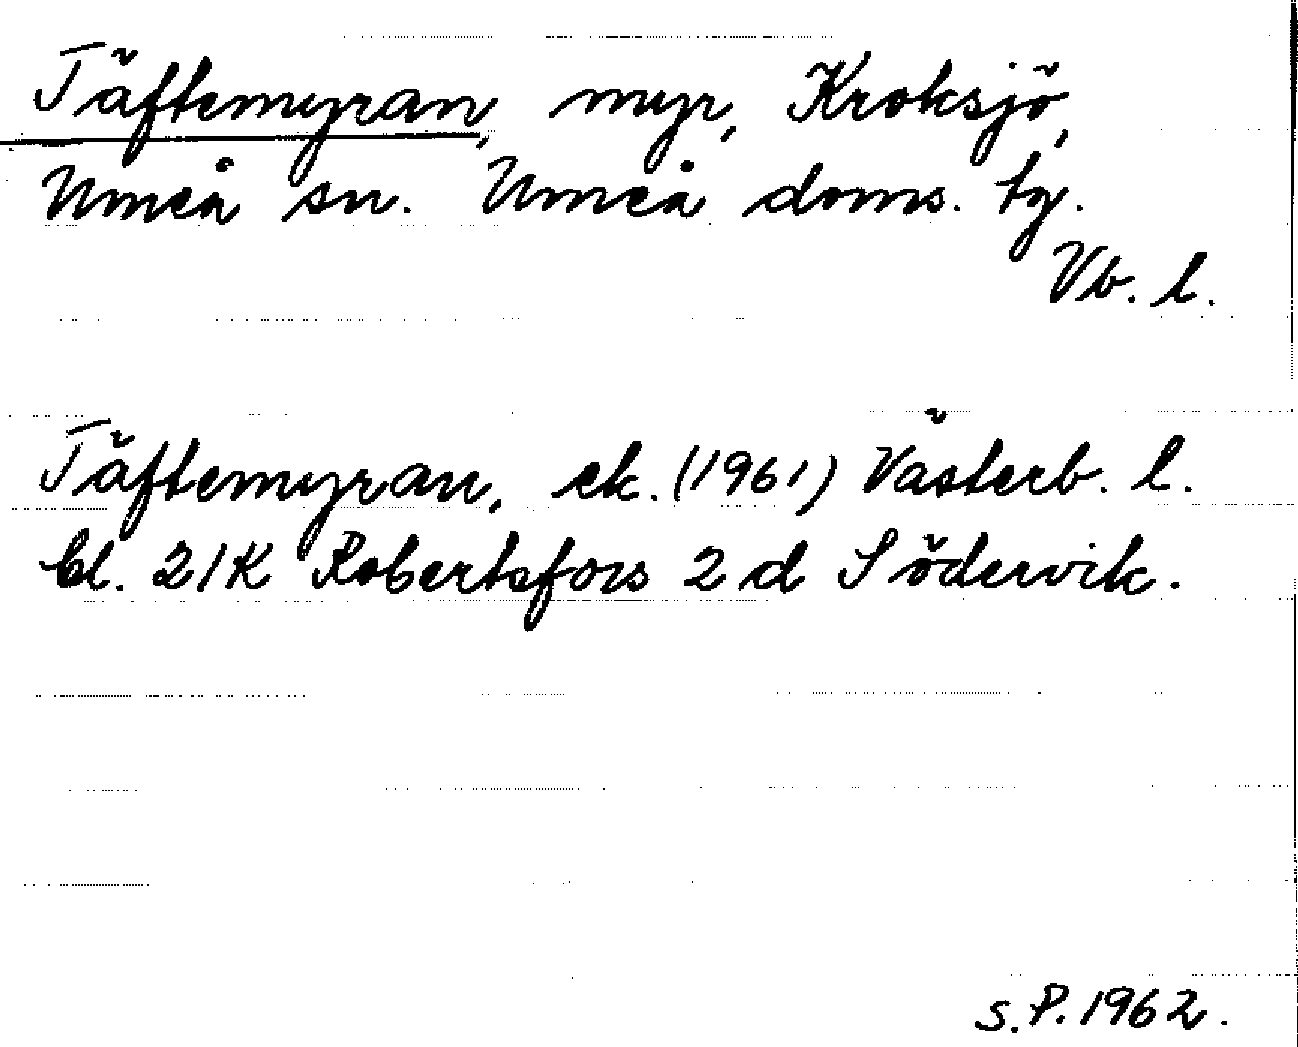 Täftemyran, myr, Kroksjö,
Umeå sn. Umeå doms. tg.
Vb. l.
Täftemyran, ek. (1961) Västerb. l.
bl. 21K Robertsfors 2 d Södervik.
S.P. 1962.